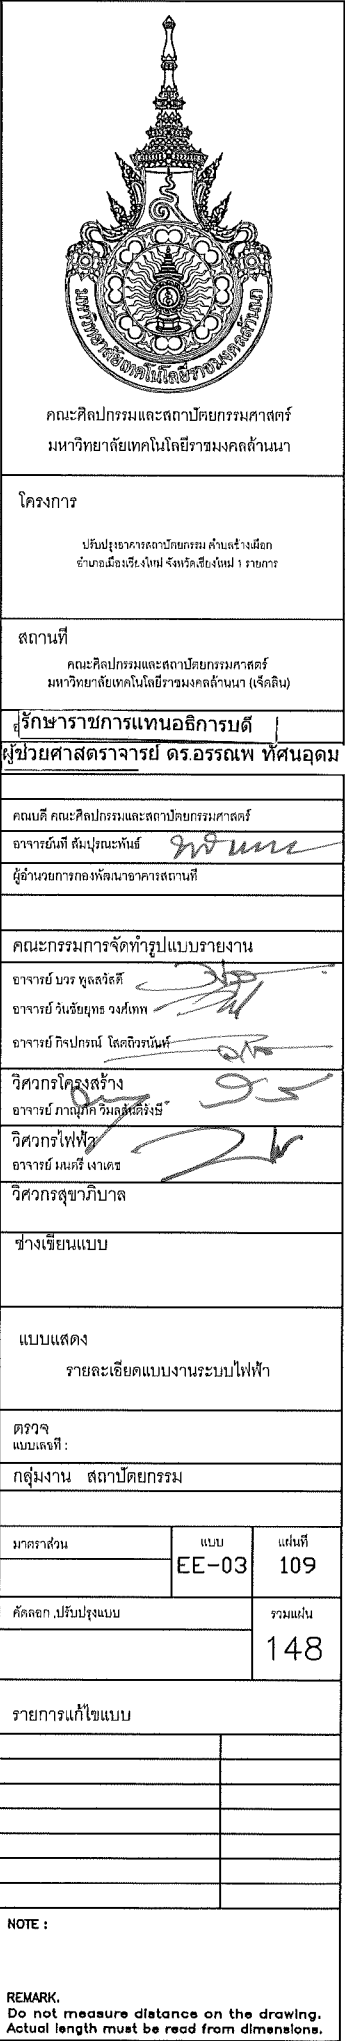 มหาวิทยาลัยเทคโนโลยีราชมงคลล้านนา
คณะศิลปกรรมและสถาปัตยกรรมศาสตร์
มหาวิทยาลัยเทคโนโลยีราชมงคลล้านนา
โครงการ
ปรับปรุงอาคารสถาปัตยกรรม ตำบลช้างเผือก
อำเภอเมืองเชียงใหม่ จังหวัดเชียงใหม่ 1 รายการ
สถานที่
คณะศิลปกรรมและสถาปัตยกรรมศาสตร์
มหาวิทยาลัยเทคโนโลยีราชมงคลล้านนา (เจ็ดลิน)
รักษาราชการแทนอธิการบดี
ผู้ช่วยศาสตราจารย์ ดร.อรรณพ ทัศนอุดม
คณบดี คณะศิลปกรรมและสถาปัตยกรรมศาสตร์
อาจารย์นที สัมปุรณะพันธ์
ผู้อำนวยการกองพัฒนาอาคารสถานที่
คณะกรรมการจัดทำรูปแบบรายงาน
อาจารย์ บวร พูลสวัสดิ์
อาจารย์ วันชัยยุทธ วงศ์เทพ
อาจารย์ กิจปกรณ์ โสตถิวรนันท์
วิศวกรโครงสร้าง
อาจารย์ ภาณุภัค
วิศวกรไฟฟ้า
อาจารย์ มนตรี เงาเดช
วิศวกรสุขาภิบาล
ช่างเขียนแบบ
แบบแสดง
รายละเอียดแบบงานระบบไฟฟ้า
ตรวจ
แบบเลขที่ :
กลุ่มงาน สถาปัตยกรรม
มาตราส่วน แบบ แผ่นที่
EE-03 109
คัดลอก ,ปรับปรุงแบบ รวมแผ่น
148
รายการแก้ไขแบบ
NOTE :
REMARK.
Do not measure distance on the drawing.
Actual length must be read from dimensions.